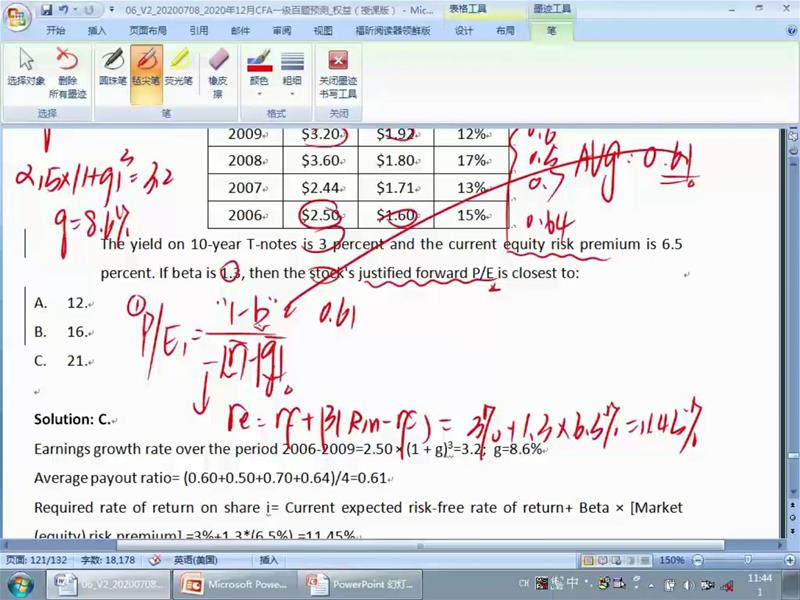 06_V2_20200708_2020年12月CFA一级百题预测_权益（授课版） - Mic...
表格工具
墨迹工具
开始 插入 页面布局 引用 邮件 审阅 视图 福昕阅读器领鲜版 设计 布局 笔
选择对象 删除所有墨迹 圆珠笔 毡尖笔 荧光笔 橡皮擦 颜色 粗细 关闭墨迹书写工具
选择 笔 格式 关闭
2009 $3.20 $1.92 12% 0.6
2008 $3.60 $1.80 17% 0.5
2007 $2.44 $1.71 13% 0.7
2006 $2.50 $1.60 15% 0.64
AVG. 0.61
g=8.6%
The yield on 10-year T-notes is 3 percent and the current equity risk premium is 6.5
percent. If beta is 1.3, then the stock's justified forward P/E is closest to:
A. 12.
B. 16.
C. 21.
① P/E1 = "1-b" 0.61
r - g
re = rf + β(Rm - rf) = 3% + 1.3 × 6.5% = 11.45%
Solution: C.
Earnings growth rate over the period 2006-2009=2.50 × (1 + g)³=3.2; g=8.6%
Average payout ratio= (0.60+0.50+0.70+0.64)/4=0.61
Required rate of return on share i= Current expected risk-free rate of return+ Beta × [Market
(equity) risk premium] =3%+1.3*(6.5%) =11.45%
页面: 121/132 字数: 18,178 英语(美国) 插入 150%
06_V2_20200708... Microsoft Powe... PowerPoint 幻灯... CH 中 11:44